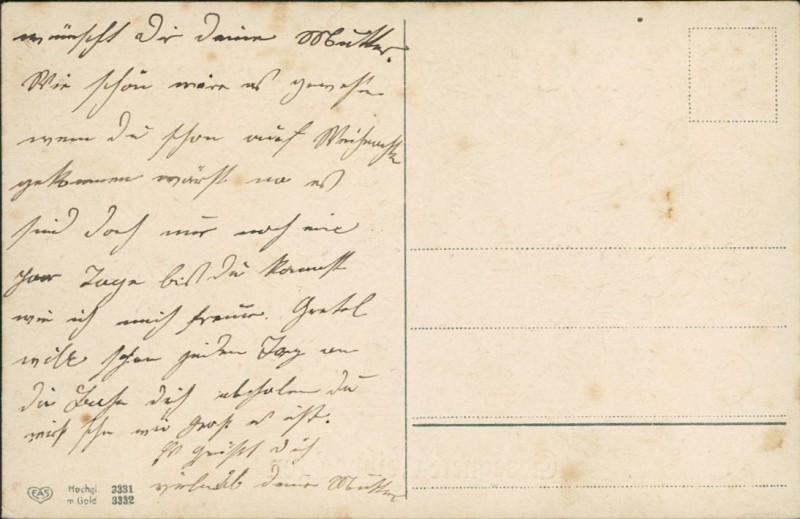 wünscht Dir deine Mutter.
Wie schön wäre es gewesen
wenn du schon auf Weihnachten
gekommen wärst na es
sind doch nur noch eine
par Tage bis du kommst
wie ich mich freue. Gretel
will schon jeden Tag an
die Bahn dich abholen du
wirst sehn wie groß es ist.
Es grüßt dich
vielmals deine Mutter
EAS Hochgl. 3331
m. Gold 3332